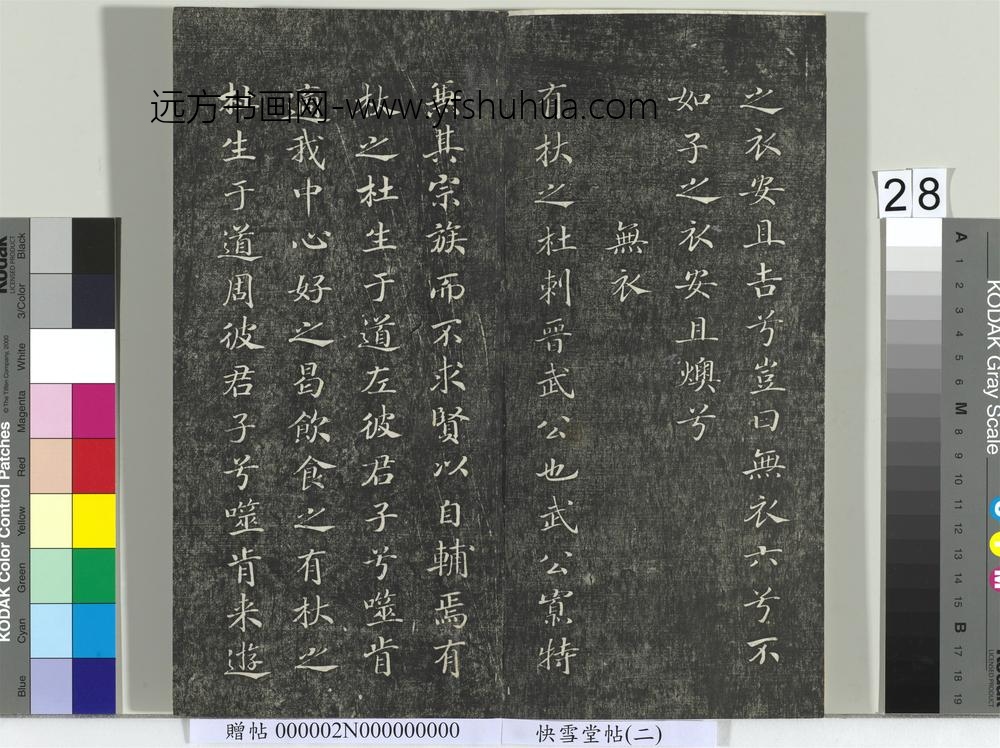 之衣安且吉兮豈曰無衣六兮不
如子之衣安且燠兮
無衣
有杕之杜刺晉武公也武公寡特
兼其宗族而不求賢以自輔焉有
杕之杜生于道左彼君子兮噬肯
適我中心好之曷飲食之有杕之
杜生于道周彼君子兮噬肯来遊
远方书画网-www.yfshuhua.com
28
贈帖 000002N000000000
快雪堂帖(二)
KODAK Color Control Patches
Kodak
LICENSED PRODUCT
© The Tiffen Company, 2000
Black
3/Color
White
Magenta
Red
Yellow
Green
Cyan
Blue
KODAK Gray Scale
A 1 2 3 4 5 6 M 8 9 10 11 12 13 14 15 B 17 18 19
C
Y
M